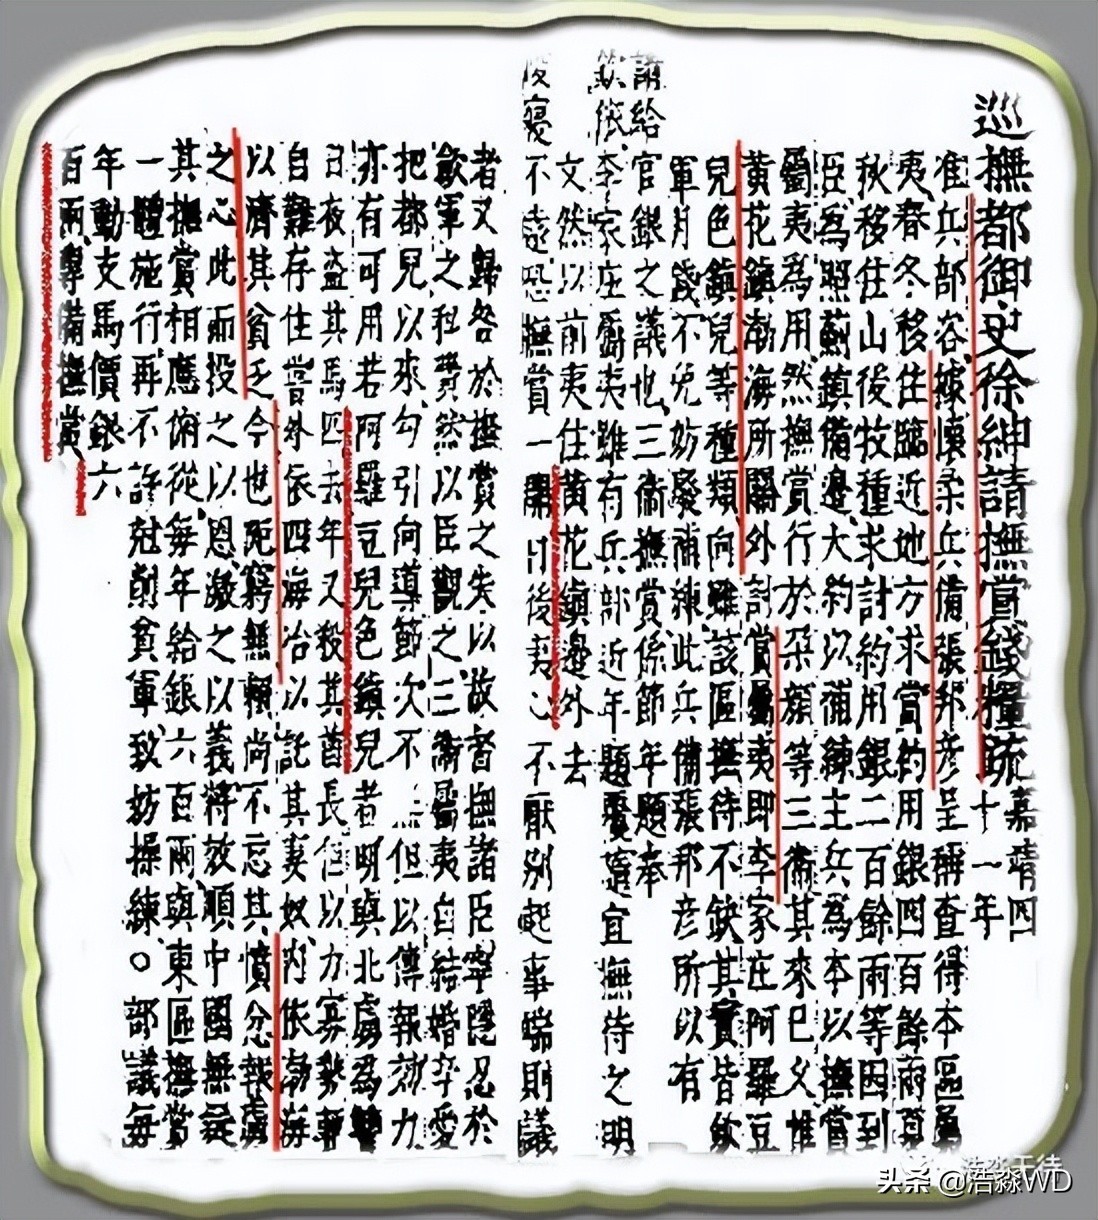 巡撫都御史徐紳請撫賞錢糧疏嘉靖四十一年
准兵部咨據懷柔兵備張邦彥呈稱查得本區屬
夷春冬移住臨近地方求賞約用銀四百餘兩夏
秋移住山後牧種求討約用銀二百餘兩等因到
臣為照薊鎮備邊大約以補練主兵為本以撫賞
屬夷為用然撫賞行於朵顏等三衛其來已久惟
黃花鎮渤海所關外討賞屬夷即李家庄阿羅豆
兒色鎮兒等種類向雖該區撫待不缺其實皆飲
軍月錢不免妨廢補練此兵備張邦彥所以有
請給
官銀之議也三衛撫賞係節年題奉
欽依李家庄屬夷雖有兵部近年題覆隨宜撫待之明
文然以前夷住黃花鎮邊外去
陵寢不遠恐撫賞一開日後夷心不厭別起事端則議
者又歸咎於撫賞之失以故督撫諸臣寧隱忍於
斂軍之科費然以臣觀之三衛屬夷自結婚辛愛
把都兒以來勾引向導節次不無但以傳報効力
亦有可用若阿羅豆兒色鎮兒者明與北虜為讐
日夜盜其馬匹去年又殺其酋長但以力寡勢單
自難存住嘗外依四海冶以託其妻奴內依渤海
以濟其貧乏今也既窮無賴尚不忘其憤忿報虜
之心此而投之以恩激之以義將效順中國無疑
其撫賞相應俯從每年給銀六百兩與東區撫賞
一體施行再不許尅削貧軍致妨操練○部議每
年動支馬價銀六
百兩專備撫賞
头条 @浩淼WD